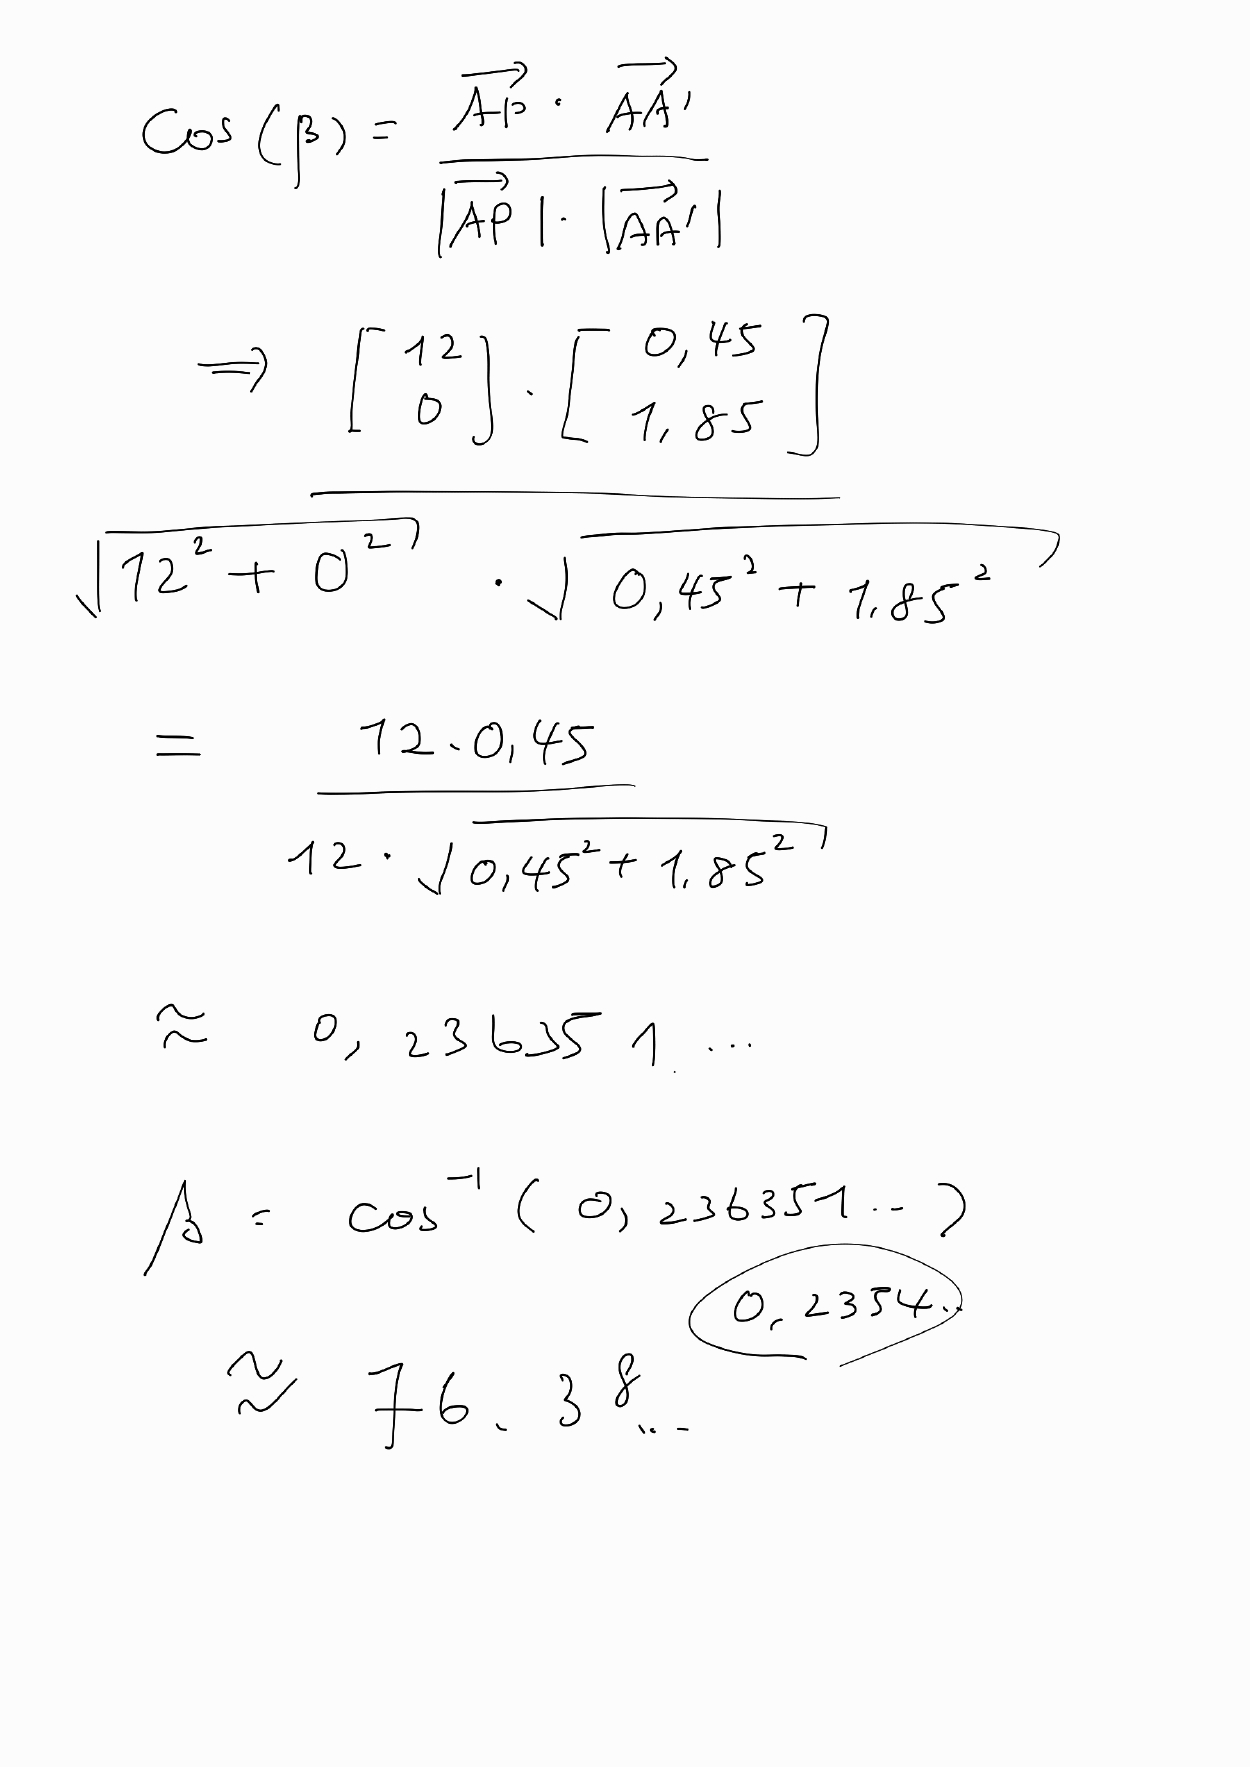 Cos(β) = AP⃗ · AA'⃗
|AP⃗| · |AA'⃗|
⇒ [12 0] · [0,45 1,85]
√12² + 0² · √0,45² + 1.85²
= 12 · 0,45
12 · √0,45² + 1.85²
≈ 0, 236351...
β = cos⁻¹ (0, 236351..)
0, 2354..
≈ 76. 38...